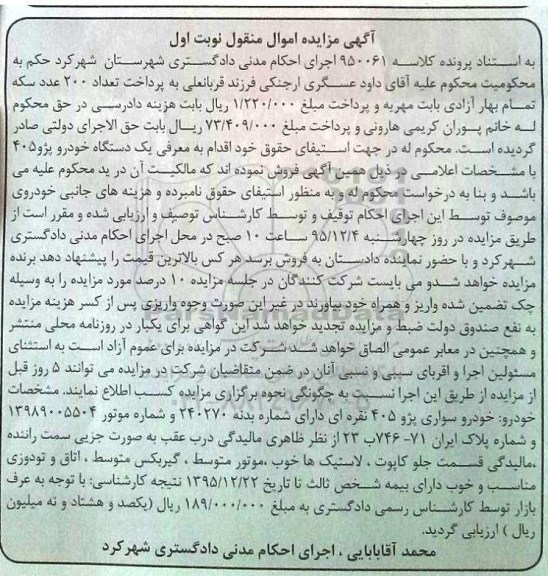 آگهی مزایده اموال منقول نوبت اول
به استناد پرونده کلاسه ۹۵۰۰۶۱ اجرای احکام مدنی دادگستری شهرستان شهرکرد حکم به
محکومیت محکوم علیه آقای داود عسگری ارجنکی فرزند قربانعلی به پرداخت تعداد ۲۰۰ عدد سکه
تمام بهار آزادی بابت مهریه و پرداخت مبلغ ۱/۲۲۰/۰۰۰ ریال بابت هزینه دادرسی در حق محکوم
له خانم پوران کریمی هارونی و پرداخت مبلغ ۷۳/۴۰۹/۰۰۰ ریال بابت حق الاجرای دولتی صادر
گردیده است. محکوم له در جهت استیفای حقوق خود اقدام به معرفی یک دستگاه خودرو پژو ۴۰۵
با مشخصات اعلامی در ذیل همین آگهی فروش نموده اند که مالکیت آن در ید محکوم علیه می
باشد و بنا به درخواست محکوم له و به منظور استیفای حقوق نامبرده و هزینه های جانبی خودروی
موصوف توسط این اجرای احکام توقیف و توسط کارشناس توصیف و ارزیابی شده و مقرر است از
طریق مزایده در روز چهارشنبه ۹۵/۱۲/۴ ساعت ۱۰ صبح در محل اجرای احکام مدنی دادگستری
شهرکرد و با حضور نماینده دادستان به فروش برسد هر کس بالاترین قیمت را پیشنهاد دهد برنده
مزایده خواهد شدو می بایست شرکت کنندگان در جلسه مزایده ۱۰ درصد مورد مزایده را به وسیله
چک تضمین شده واریز و همراه خود بیاورند در غیر این صورت وجوه واریزی پس از کسر هزینه مزایده
به نفع صندوق دولت ضبط و مزایده تجدید خواهد شد این گواهی برای یکبار در روزنامه محلی منتشر
و همچنین در معابر عمومی الصاق خواهد شد شرکت در مزایده برای عموم آزاد است به استثنای
مسئولین اجرا و اقربای سببی و نسبی آنان در ضمن متقاضیان شرکت در مزایده می توانند ۵ روز قبل
از مزایده از طریق این اجرا نسبت به چگونگی نحوه برگزاری مزایده کسب اطلاع نمایند. مشخصات
خودرو: خودرو سواری پژو ۴۰۵ نقره ای دارای شماره بدنه ۲۴۰۲۷۰ و شماره موتور ۱۳۹۸۹۰۰۵۵۰۴
و شماره پلاک ایران ۷۱- ۷۴۶ب ۲۳ از نظر ظاهری مالیدگی درب عقب به صورت جزیی سمت راننده
،مالیدگی قسمت جلو کاپوت ، لاستیک ها خوب ،موتور متوسط ، گیربکس متوسط ، اتاق و تودوزی
مناسب و خوب دارای بیمه شخص ثالث تا تاریخ ۱۳۹۵/۱۲/۲۲ نتیجه کارشناسی: با توجه به عرف
بازار توسط کارشناس رسمی دادگستری به مبلغ ۱۸۹/۰۰۰/۰۰۰ ریال (یکصد و هشتاد و نه میلیون
ریال ) ارزیابی گردید.
محمد آقابابایی ، اجرای احکام مدنی دادگستری شهرکرد